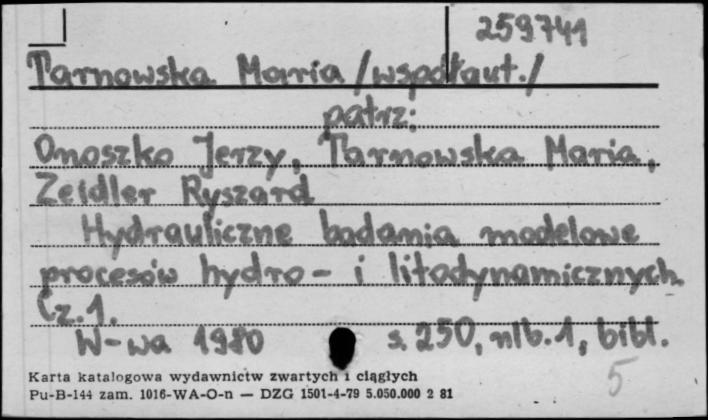 259741
Tarnowska Maria /współaut./
patrz:
Onoszko Jerzy, Tarnowska Maria,
Zeidler Ryszard
Hydrauliczne badania modelowe
procesów hydro- i litodynamicznych.
Cz. 1.
W-wa 1980 s. 250, nlb. 1, bibl.
5
Karta katalogowa wydawnictw zwartych i ciągłych
Pu-B-144 zam. 1016-WA-O-n — DZG 1501-4-79 5.050.000 2 81